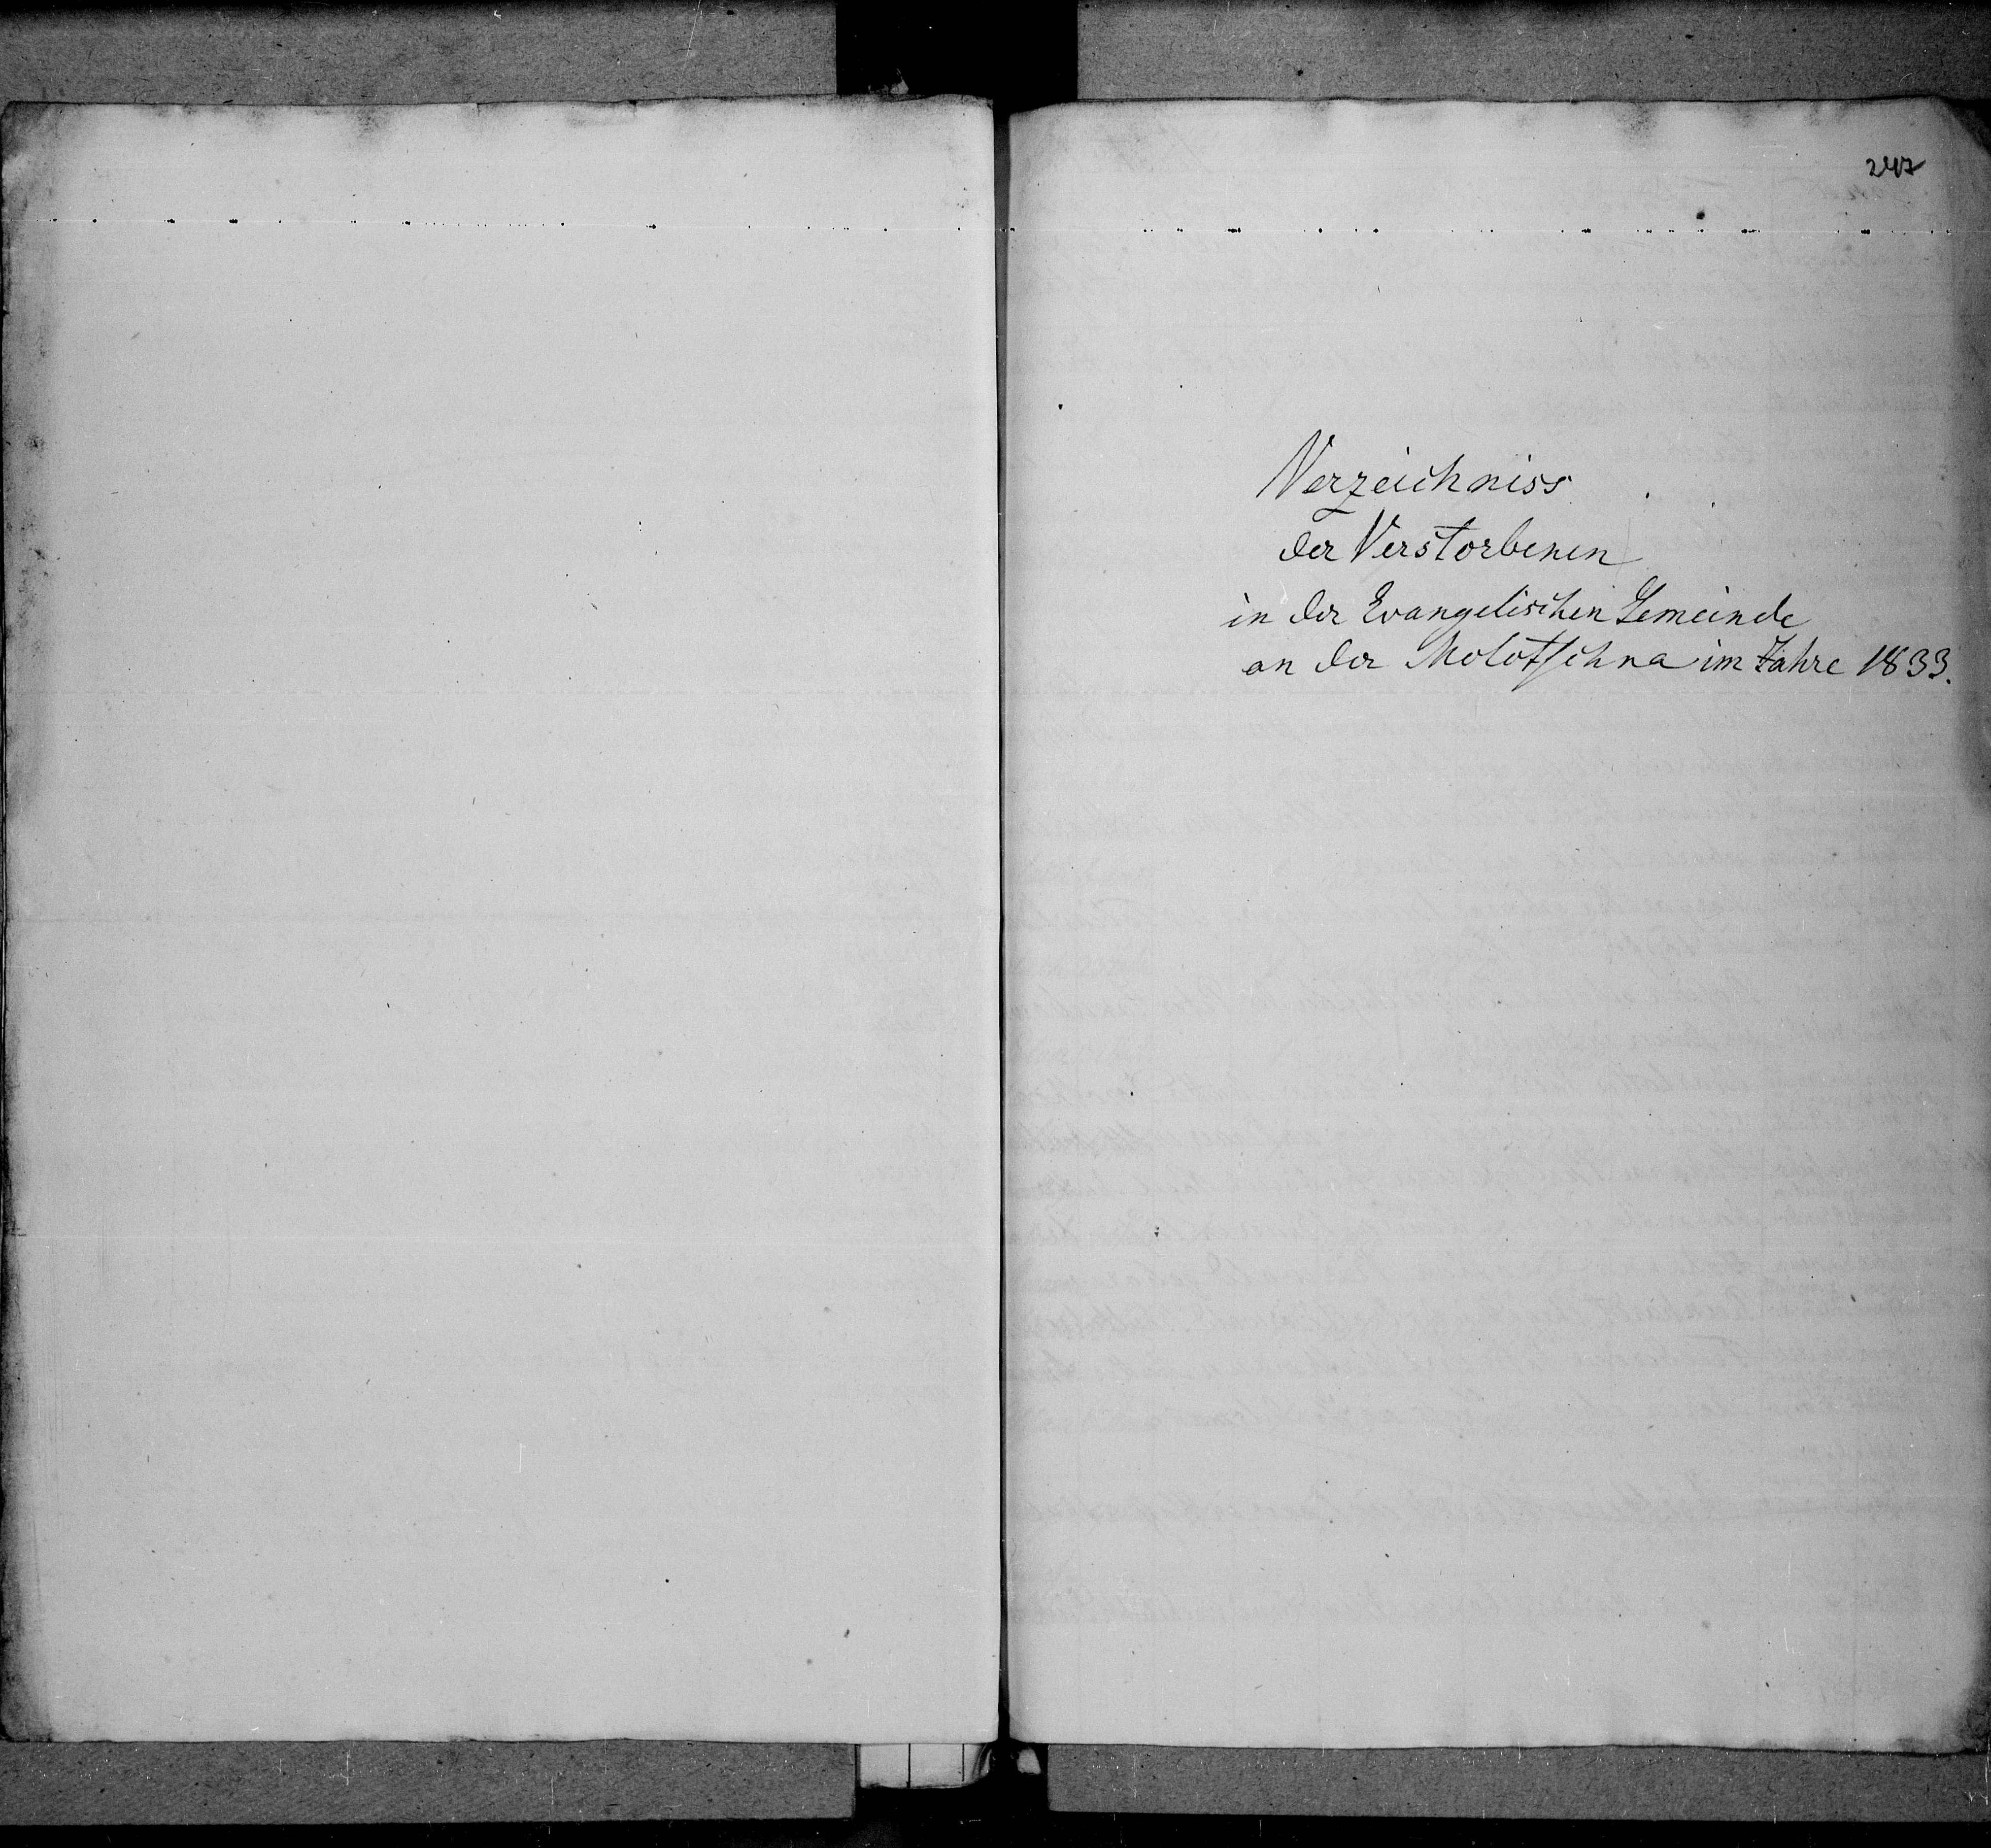 247
Verzeichniss
der Verstorbenen
in der Evangelischen Gemeinde
an der Molotschna im Jahre 1833.